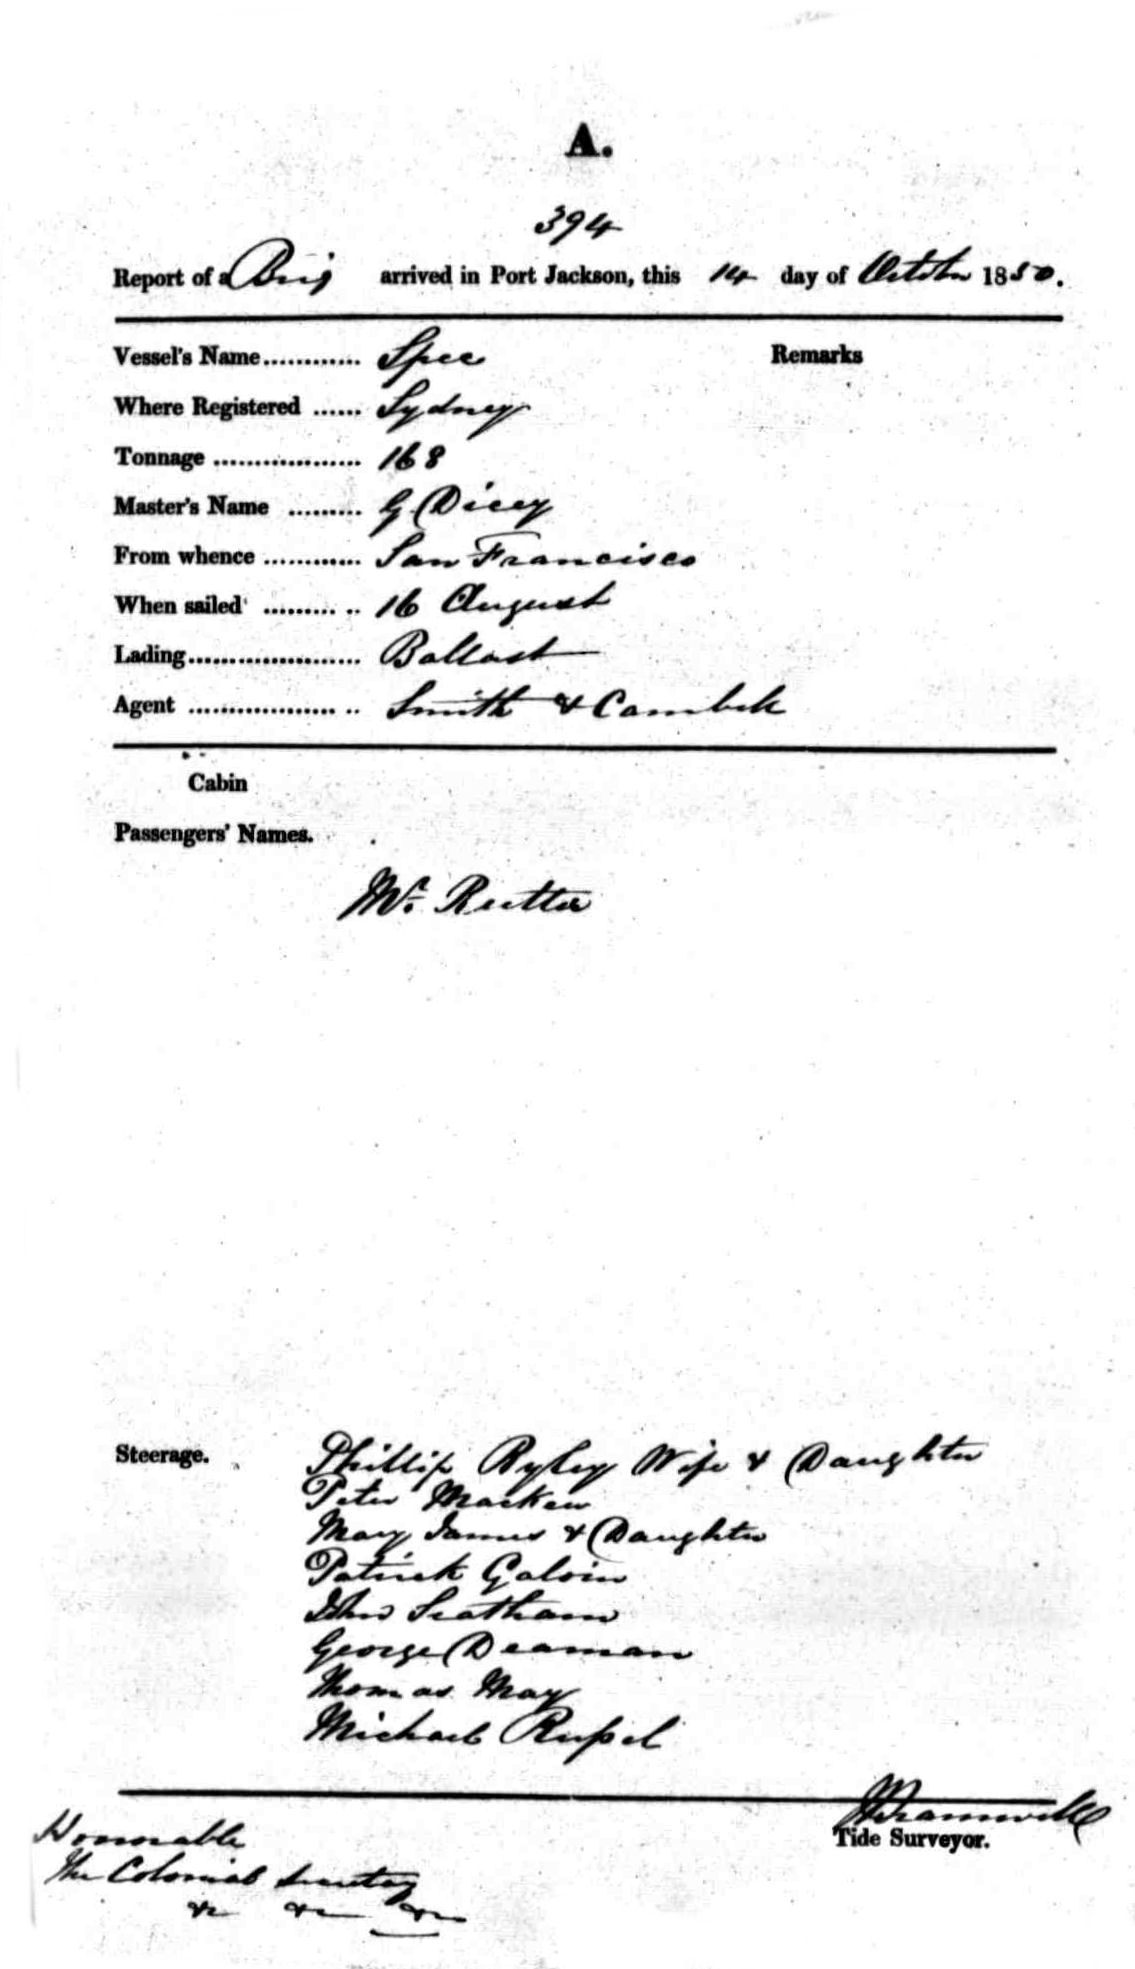 A.
394
Report of a Brig arrived in Port Jackson, this 14 day of October 1850.
Vessel's Name............ Spec
Remarks
Where Registered ...... Sydney
Tonnage .................. 168
Master's Name ......... G Dicey
From whence ............ San Francisco
When sailed ......... .. 16 August
Lading..................... Ballast
Agent .................. .. Smith &
Cabin
Passengers' Names.
Mr. Rutter
Steerage. Phillip Ryley Wife & Daughter
Peter Macken
Mary James & Daughter
Patrick Galvin
John
George Deaman
Thomas May
Michael Russel
Tide Surveyor.
Honorable
The Colonial Secretary
&c &c &c